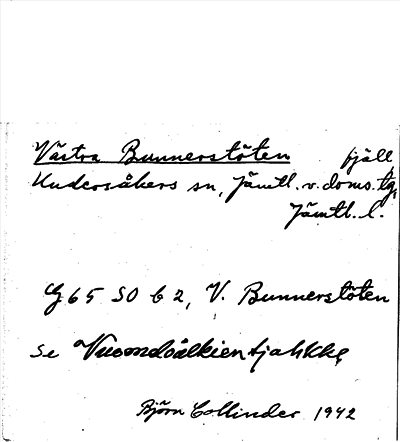 Västra Bunnerstöten fjäll
Undersåkers sn, Jämtl. v. doms. tg,
Jämtl. l.
G 65 SO b 2, V. Bunnerstöten
se Vuomdoålkientjahkkę
Björn Collinder 1942